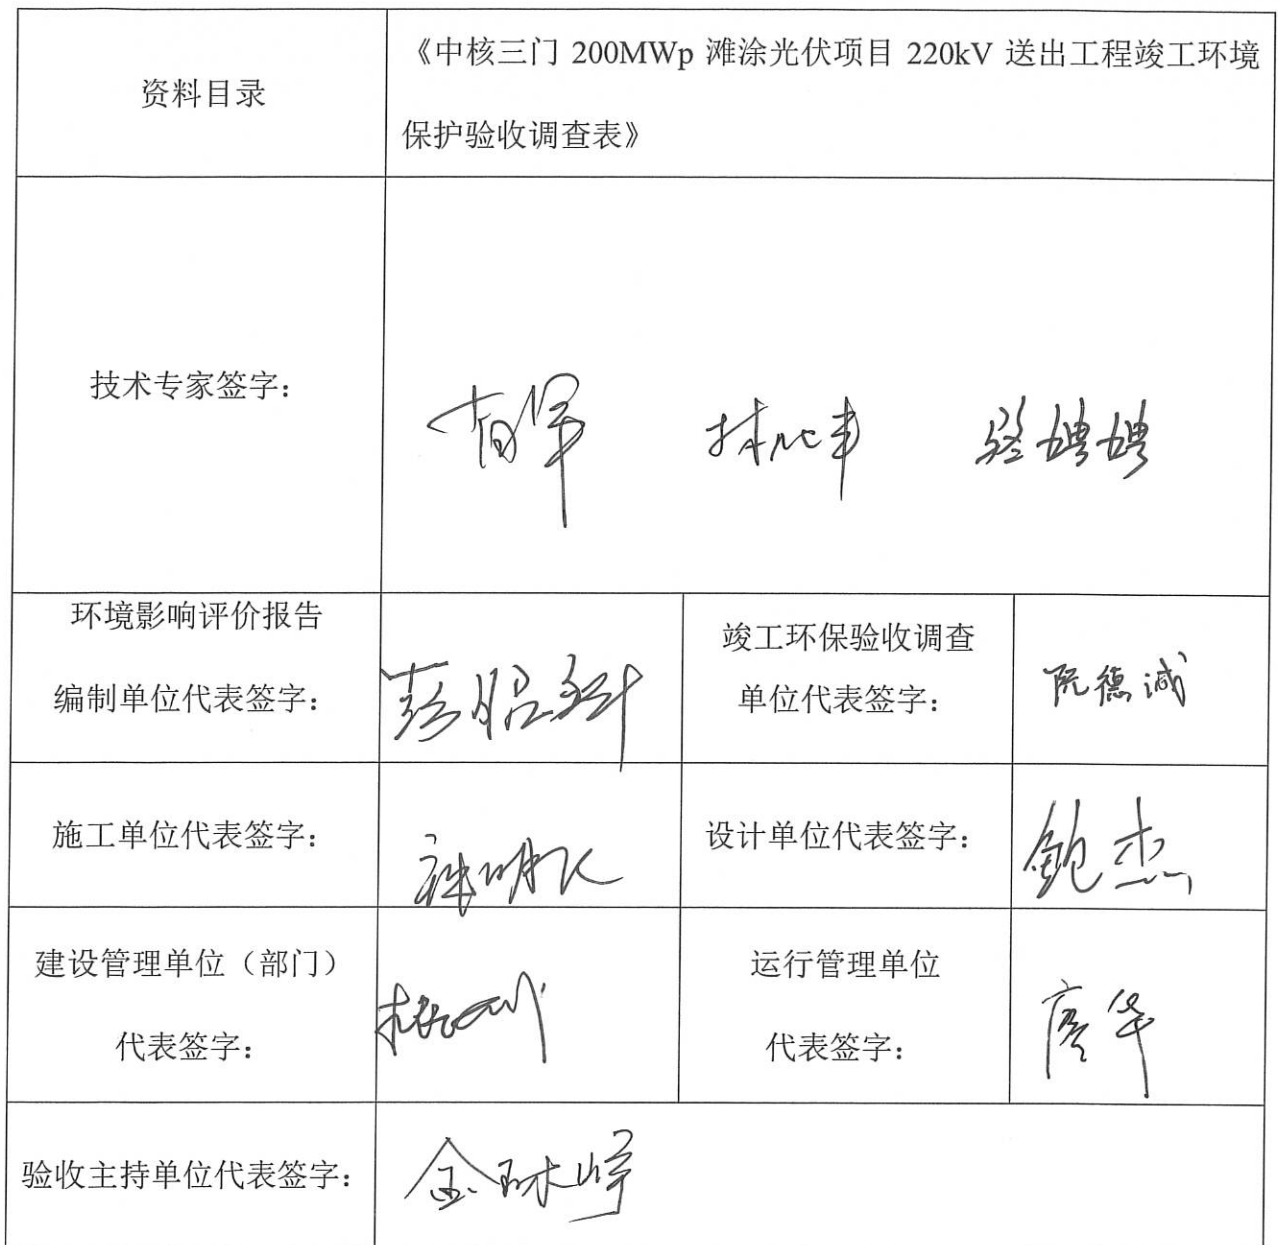 资料目录
《中核三门 200MWp 滩涂光伏项目 220kV 送出工程竣工环境
保护验收调查表》
技术专家签字：
骆娉娉
环境影响评价报告
编制单位代表签字：
竣工环保验收调查
单位代表签字：
阮德诚
施工单位代表签字：
设计单位代表签字：
鲍杰
建设管理单位（部门）
代表签字：
运行管理单位
代表签字：
廖华
验收主持单位代表签字：